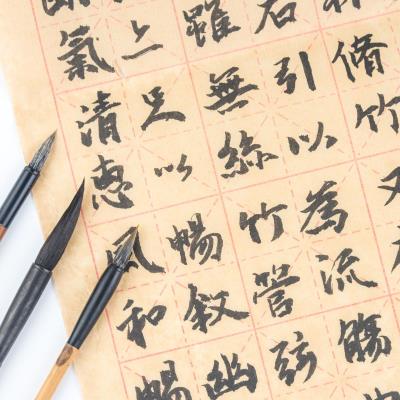 脩竹又
右引以為流觴曲
雖無絲竹管弦
亦足以暢敘幽
朗氣清惠風和暢